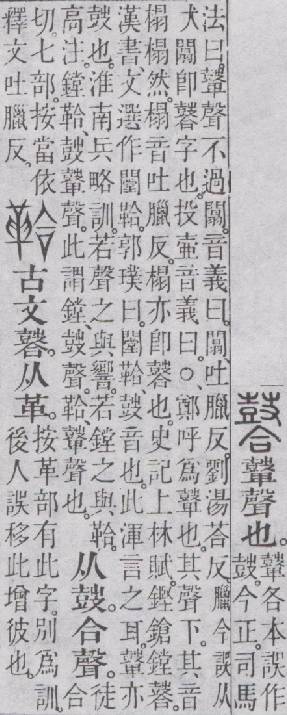 鼙聲也。鼙各本誤作
鼓。今正。司馬
法曰。鼙聲不過闒。音義曰。闒、吐臘反。劉湯荅反。臘今誤从
犬。闒卽字也。投壺音義曰。○、鄭呼爲鼙也。其聲下。其音
榻榻然。榻音吐臘反。榻亦卽也。史記上林賦。鏗鎗鐺。
漢書文選作闛鞈。郭璞曰。闛鞈、鼓音也。此渾言之耳。鼙亦
鼓也。淮南兵略訓。若聲之與響。若鏜之與鞈。
高注。鏜鞈、鼓鼙聲。此謂鏜、鼓聲。鞈、鼙聲也。
从鼓合聲。徒合
切。七部。按當依
釋文吐臘反。
鞈古文。从革。按革部有此字。別爲訓。
後人誤移此增彼也。